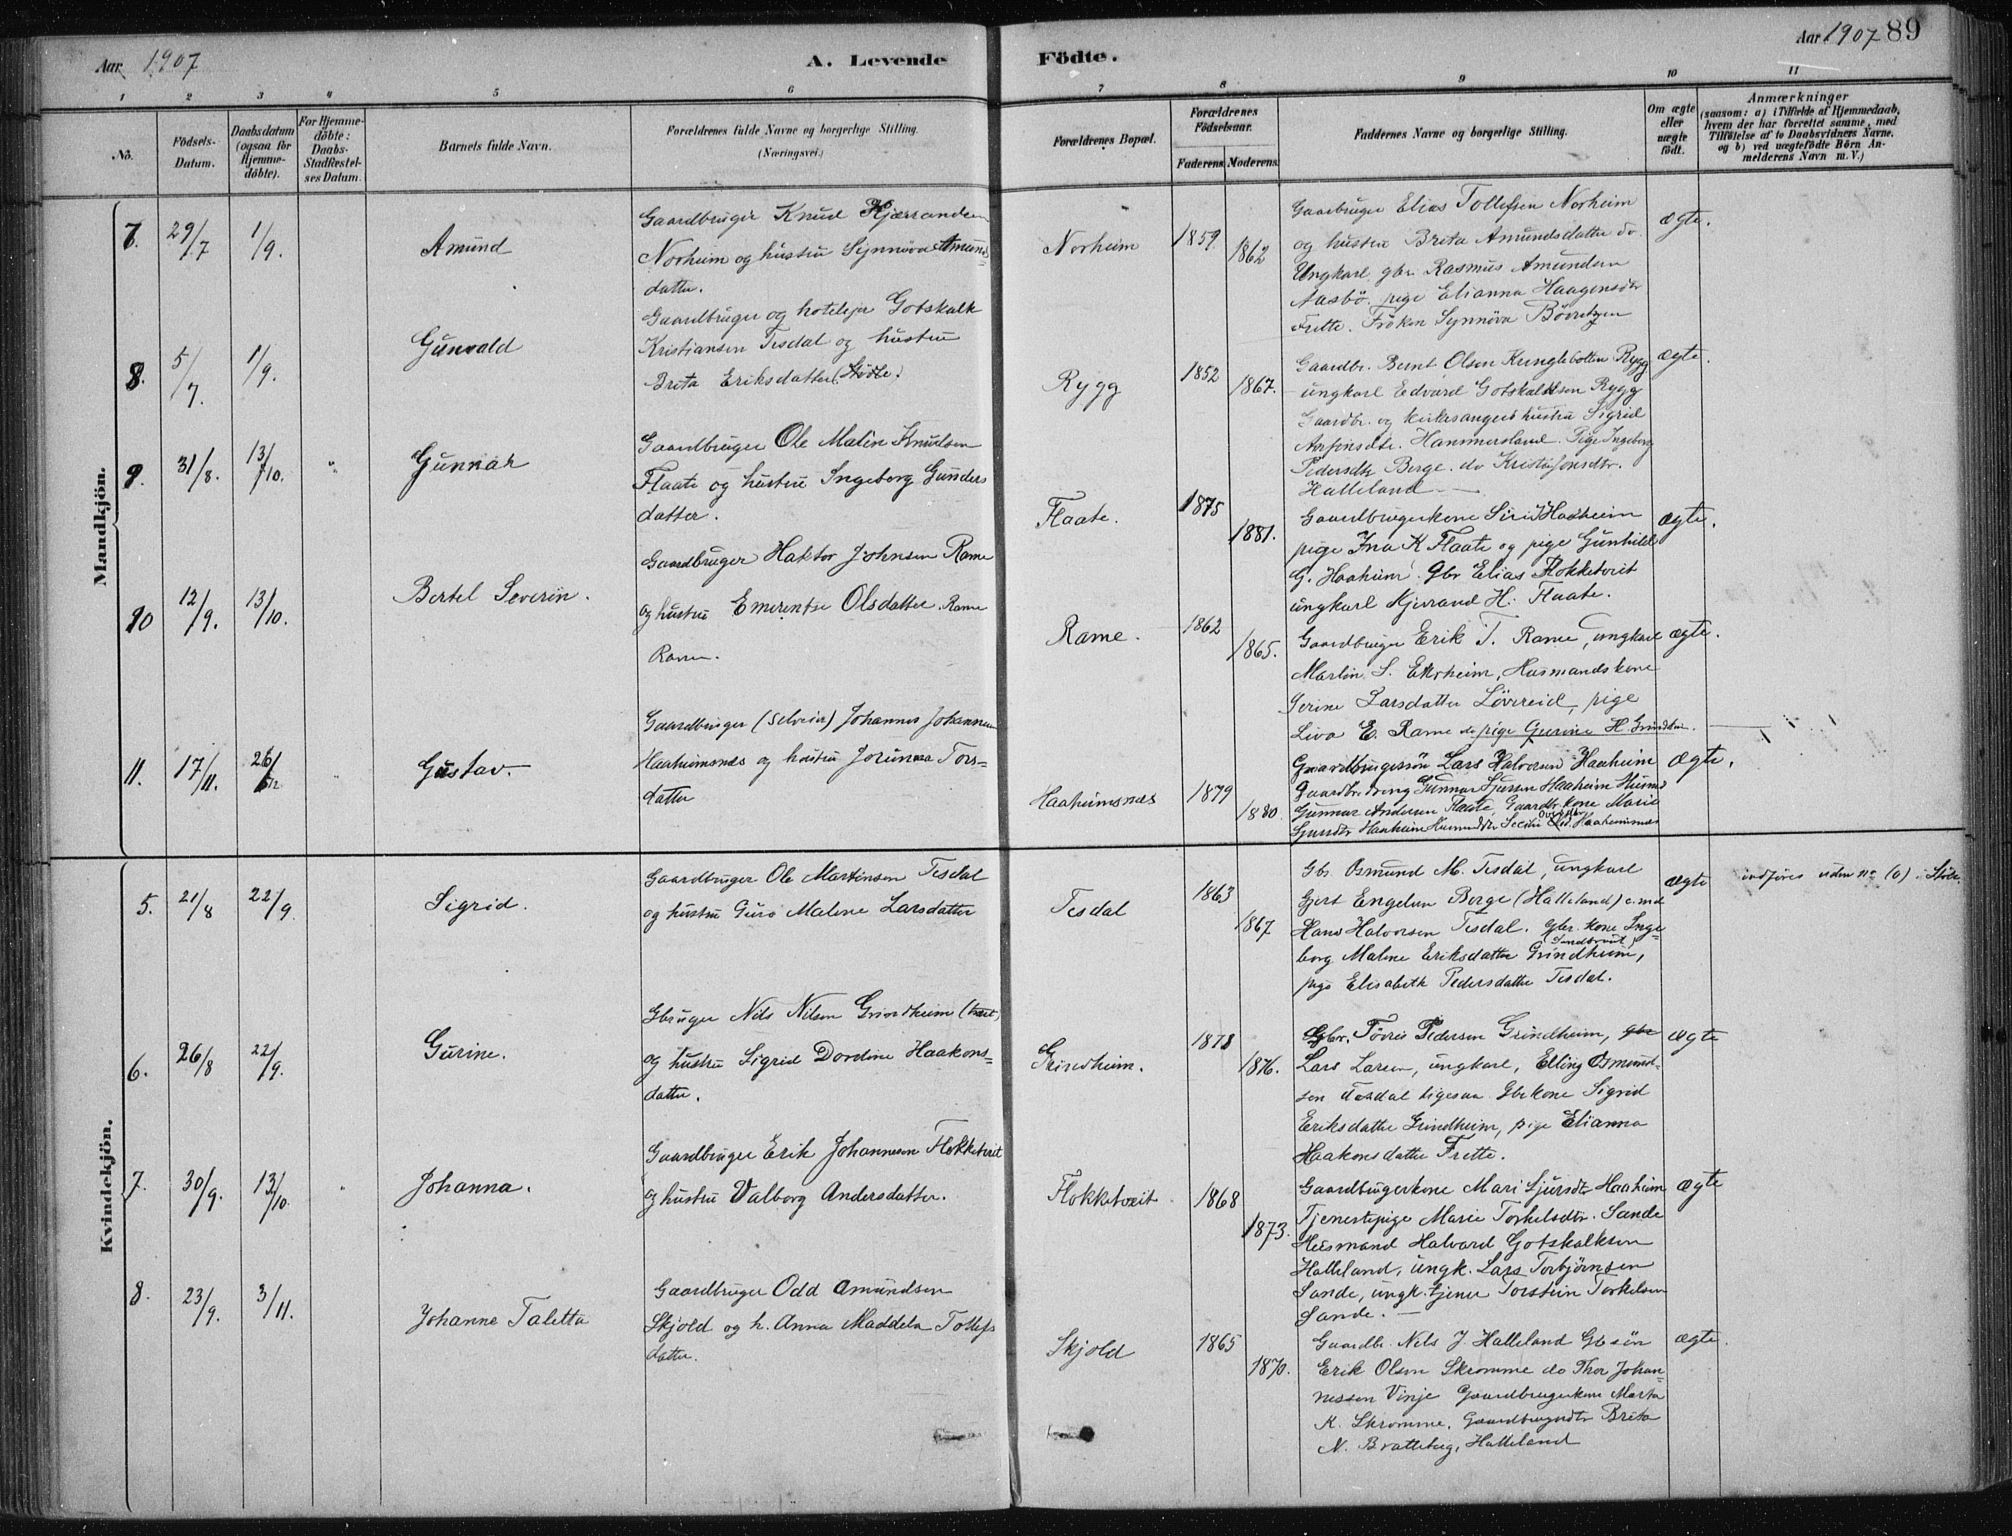 Aar 1907
A. Levende
Födte.
Aar 1907 89
1 2 3 4 5 6 7 8 9 10 11
No.
Födsels-
Datum.
Daabsdatum
(ogsaa for
Hjemme-
döbte).
For Hjemme-
döbte:
Daabs-
Stadfæstel-
ses Datum.
Barnets fulde Navn.
Forældrenes fulde Navne og borgerlige Stilling.
(Næringsvei.)
Forældrenes Bopæl.
Forældrenes
Födselsaar.
Faderens. Moderens.
Faddernes Navne og borgerlige Stilling.
Om ægte
eller
uægte
födt.
Anmærkninger
(saasom: a) i Tilfælde af Hjemmedaab,
hvem der har forrettet samme, med
Tilföielse af to Daabsvidners Navne,
og b) ved uægtefödte Börn An-
melderens Navn m. V.)
Mandkjön.
7. 29/7 1/9. Amund
Gaardbruger Knud Kjærrandsen
Norheim og hustru Synnöva Amunds-
datter.
Norheim 1859 1862
Gaardbruger Elias Tollefsen Norheim
og hustru Brita Amundsdatter do.
Ungkarl gbr. Rasmus Amundsen
Aasbö. pige Elianna Haagensdtr
Frette. Fröken Synnöva Bövretzen
ægte.
8. 5/7. 1/9. Gunvald
Gaardbruger og hoteleier Gotskalk
Kristiansen Tesdal og hustru
Brita Eriksdatter (Stöle.)
Rygg 1852 1867.
Gaardbr. Bernt Olsen Kunglebotten Rygg
ungkarl Edvard Gotskalksen Rygg
Gaardbr. og kirkesangers hustru Sigrid
Anfinsdtr. Hammersland. Pige Ingeborg
Pedersdtr Berge. do Kristi Jonsdtr.
Halleland
ægte.
9. 31/8. 13/10. " Gunnar
Gaardbruger Ole Malin Knudsen
Flaate og hustru Ingeborg Gunders
datter.
Flaate. 1875 1881.
Gaardbrugerkone Siri J Haaheim
pige Ina K Flaate og pige Gunhild
G. Haaheim. Gbr Elias Flokketveit
ungkarl Kjerrand H. Flaate.
ægte.
10 12/9. 13/10. Bertel Severin.
Gaardbruger Haktor Johnsen Rame
og hustru Emerentse Olsdatter Rame
Rame.
Rame. 1862 1865.
Gaardbruger Erik T. Rame, ungkarl
Martin S. Ekrheim, Husmandskone
Serine Larsdatter Lövereid, pige
Liva E. Rame do pige Gurine H. Grindheim
ægte.
11. 17/11. 26/12. " Gustav.
Gaardbruger (Selveier) Johannes Johannesen
Haaheimsnæs og hustru Jorunna Tors-
datter
Haaheimsnæs 1879 1880.
Gaardbrugersön Lars Halvorsen Haaheim
Gaardbr. dreng Gunnar Sjursen Haaheim Husmd
Gunnar Andersen Flaate, Gaardbr.kone Marie
Sjursdtr Haaheim Husmdtr Haaheimsnæs
ægte.
Kvindekjön.
5. 21/8 22/9. Sigrid.
Gaardbruger Ole Martinsen Tesdal
og hustru Guro Malene Larsdatter
Tesdal 1863 1867
Gbr. Osmund M. Tesdal, ungkarl
Gjert Engelsen Berge (Halleland) e.md
Hans Halvorsen Tesdal. Gbr. kone Inge-
borg Malene Eriksdatter Grindheim,
pige Elisabeth Pedersdatter Tesdal.
ægte
indföres uden no (0) i Stöle.
6. 26/8 22/9. Gurine.
Gbruger Nils Nilsen Grindheim
og hustru Sigrid Dordine Haakons-
datter.
Grindheim. 1878 1876.
Gbr. Tovris Pedersen Grindheim, gbr
Lars Larsen, ungkarl, Elling Osmund-
sen Tesdal ligesaa. Gbrkone Sigrid
Eriksdatter Grindheim, pige Elianna
Haakonsdatter Frette.
ægte
7. 30/9. 13/10. Johanna.
Gaardbruger Erik Johannesen Flokketveit
og hustru Valborg Andersdatter.
Flokketveit. 1868 1873.
Gaardbrugerkone Mari Sjursdtr Haaheim
Tjenestepige Marie Torkelsdtr. Sande
Husmand Halvard Gotskalksen
Halleland, ungk. Lars Torbjörnsen
Sande, ungk. tjener Torstein Torkelsen
Sande.
ægte
8. 23/9. 3/11. Johanne Taletta
Gaardbruger Odd Amundsen
Skjold og h. Anna Maddela Tollefs
datter.
Skjold 1865 1870.
Gaardbr. Nils J. Halleland Gbsön
Erik Olsen Skromme do Thor Johan-
nessen Vinje Gaardbrugerkone Marta
K. Skromme. Gaardbrugerdtr Brita
N. Bratteberg, Halleland
ægte.